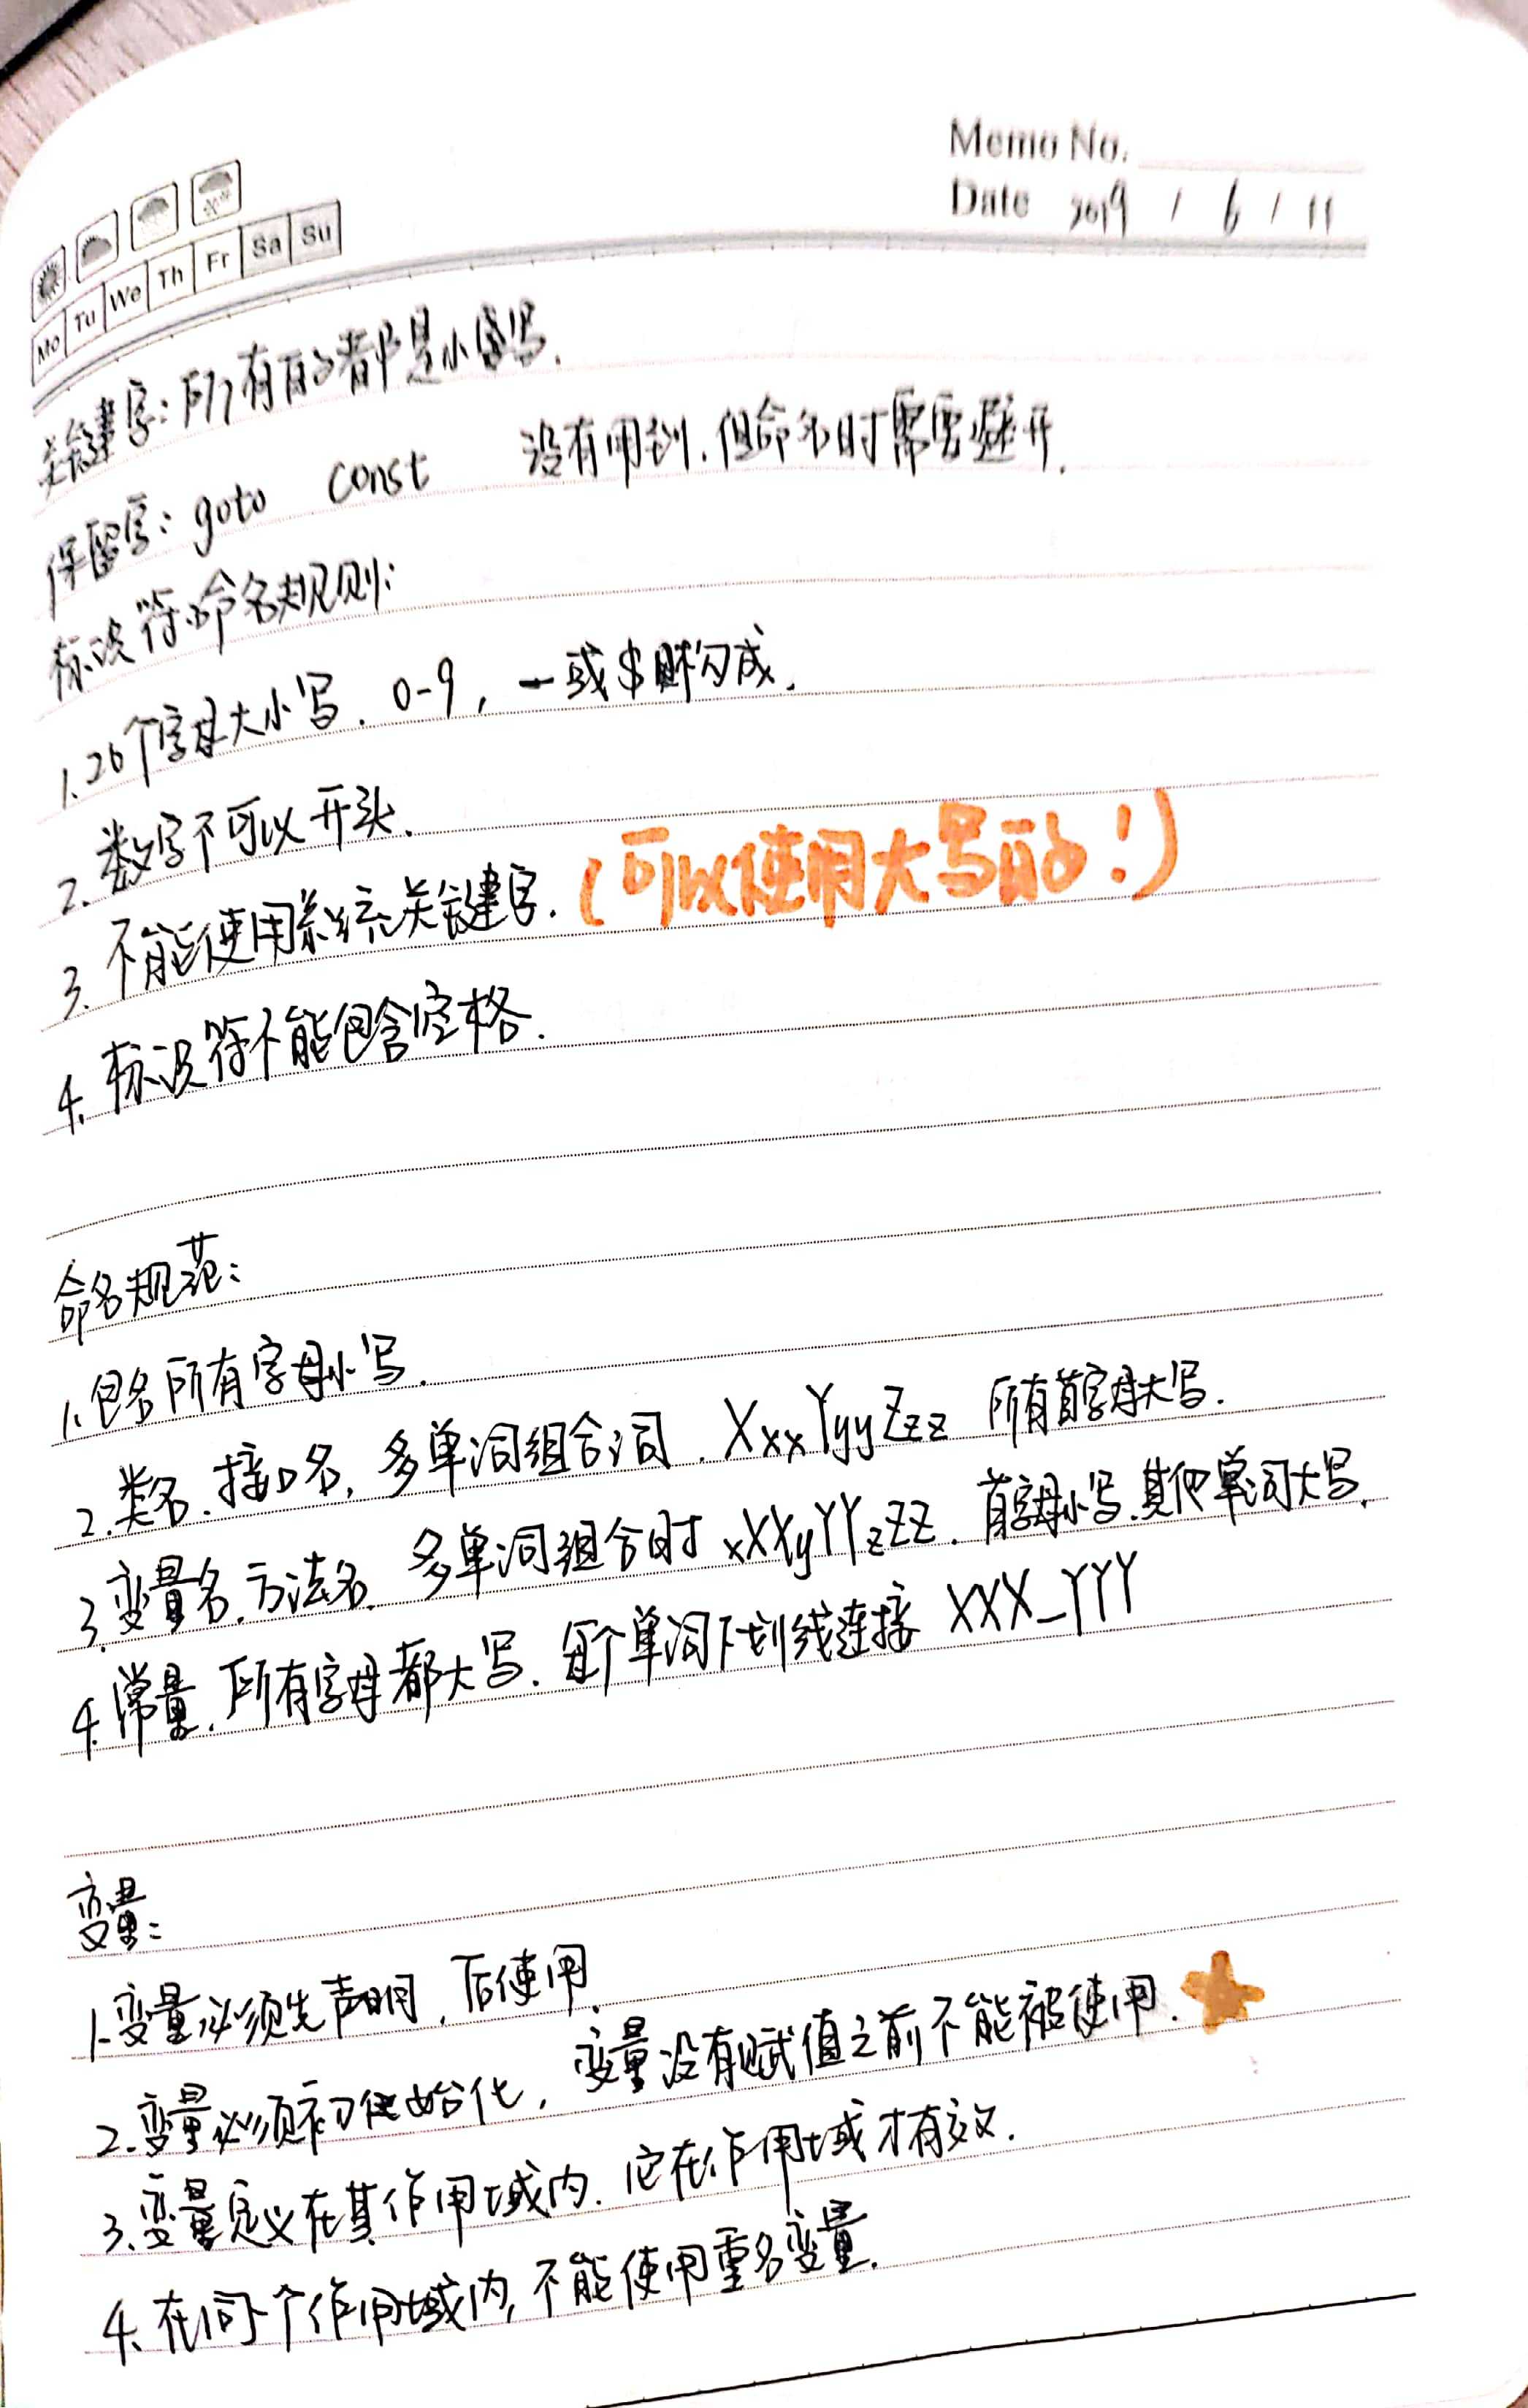 Memo No.
Date 2019 / 6 / 11
Mo Tu We Th Fr Sa Su
关键字：所有的都是小写.
保留字：goto const 没有用到.但命名时需要避开.
标识符命名规则：
1.26个字母大小写.0-9,_或$构成.
2.数字不可以开头.
3.不能使用系统关键字.(可以使用大写的!)
4.标识符不能包含空格.
命名规范：
1.包名所有字母小写.
2.类名.接口名,多单词组合词.XxxYyyZzz 所有首字母大写.
3.变量名.方法名.多单词组合时xXXyYYzZZ.首字母小写.其他单词大写.
4.常量.所有字母都大写.每个单词下划线连接 XXX_YYY
变量：
1.变量必须先声明,后使用.
2.变量必须初始化,变量没有赋值之前不能被使用.
3.变量定义在其作用域内.它在作用域才有效.
4.在同一个作用域内,不能使用重名变量.